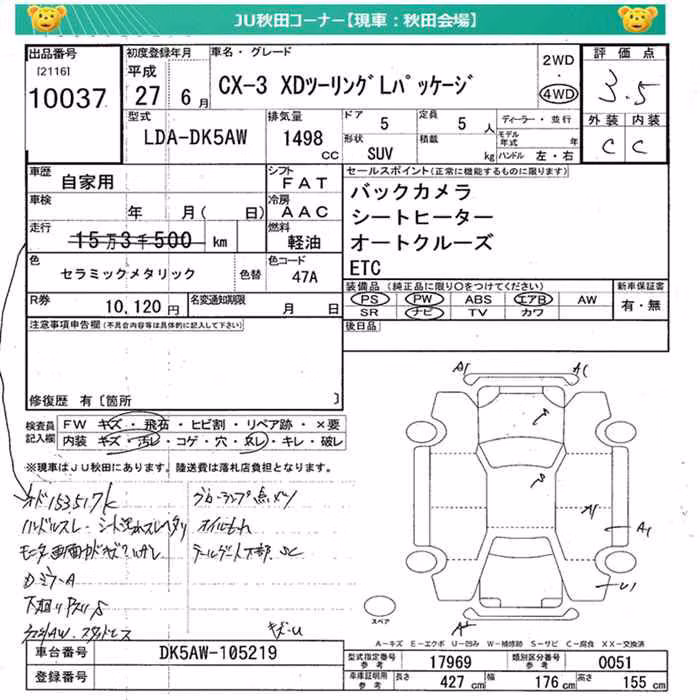 JU秋田コーナー【現車：秋田会場】
出品番号
[2116]
10037
初度登録年月
平成
27 6月
車名・グレード
CX-3 XDツーリングLパッケージ
2WD
4WD
評価点
3.5
外装 内装
C C
型式
LDA-DK5AW
排気量
1498 cc
ドア 5
定員 5 人
形状 SUV
積載 kg
ディーラー・並行
モデル年式 年
ハンドル 左・右
車歴
自家用
シフト
FAT
車検
年 月( 日)
冷房
AAC
走行
15万3千500 km
燃料
軽油
色
セラミックメタリック
色替
色コード
47A
R券
10,120円
名変通知期限
月 日
セールスポイント(正常に機能するものに限ります)
バックカメラ
シートヒーター
オートクルーズ
ETC
装備品(純正品に限り○をつけてください)
PS PW ABS エアB AW
SR ナビ TV カワ
新車保証書
有・無
後日品
注意事項申告欄(不具合内容等は具体的に記入して下さい)
修復歴 有〔箇所 〕
検査員記入欄
FW キズ・飛石・ヒビ割・リペア跡・×要
内装 キズ・汚レ・コゲ・穴・灰レ・キレ・破レ
※現車はJU秋田にあります。陸送費は落札店負担となります。
オド153517k
ハンドルスレ・シート
Dミラー A
グローランプ点
オイルもれ
テールゲート下部 SC
キズ-U
A1 A1
A1
U1
スペア
A-キズ E-エクボ U-凹み W-補修跡 S-サビ C-腐食 XX-交換済
車台番号
DK5AW-105219
登録番号
型式指定番号 参考
17969
類別区分番号 参考
0051
車庫証明用 参考
長さ 427 cm
幅 176 cm
高さ 155 cm